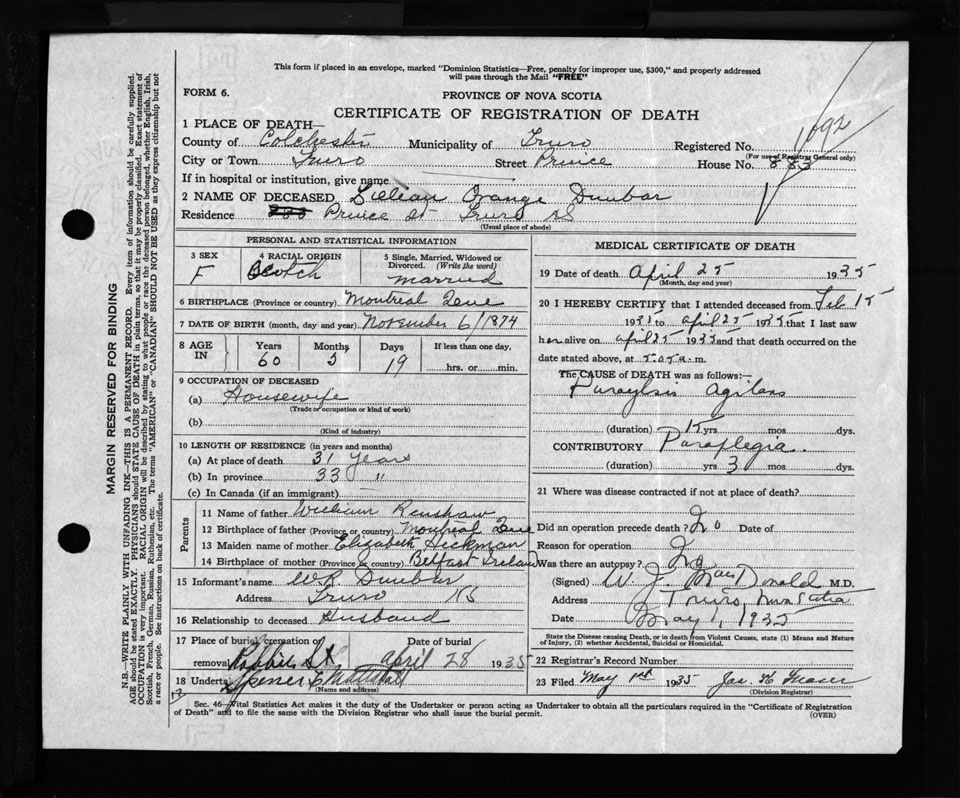 This form if placed in an envelope, marked "Dominion Statistics—Free, penalty for improper use, $300," and properly addressed
will pass through the Mail "FREE"
FORM 6.
PROVINCE OF NOVA SCOTIA
CERTIFICATE OF REGISTRATION OF DEATH
1092
1 PLACE OF DEATH—
County of Colchester Municipality of Truro Registered No.
(For use of Registrar General only)
City or Town Truro Street Prince House No. 883
If in hospital or institution, give name
2 NAME OF DECEASED Lillian Orange Dunbar
Residence Prince St Truro NS
(Usual place of abode)
PERSONAL AND STATISTICAL INFORMATION
3 SEX 4 RACIAL ORIGIN 5 Single, Married, Widowed or
Divorced. (Write the word)
F Scotch married
6 BIRTHPLACE (Province or country) Montreal Que
7 DATE OF BIRTH (month, day and year) November 6/1874
8 AGE IN Years Months Days If less than one day,
60 5 19 hrs. or min.
9 OCCUPATION OF DECEASED
(a) Housewife
(Trade or occupation or kind of work)
(b)
(Kind of industry)
10 LENGTH OF RESIDENCE (in years and months)
(a) At place of death 31 years
(b) In province 33 "
(c) In Canada (if an immigrant)
Parents
11 Name of father William Renshaw
12 Birthplace of father (Province or country) Montreal Que
13 Maiden name of mother Elizabeth Hickman
14 Birthplace of mother (Province or country) Belfast Ireland
15 Informant's name W R Dunbar
Address Truro NS
16 Relationship to deceased Husband
17 Place of burial, cremation or Date of burial
removal Robbie St April 28 1935
18 Undert Spencer
(Name and address)
MEDICAL CERTIFICATE OF DEATH
19 Date of death April 25 1935
(Month, day and year)
20 I HEREBY CERTIFY that I attended deceased from Feb 15
1931 to april 25 1935 that I last saw
her alive on april 25 1935 and that death occurred on the
date stated above, at 5.05 a. m.
The CAUSE of DEATH was as follows:—
Paraylsis agitans
(duration) 15 yrs mos dys.
CONTRIBUTORY Paraplegia
(duration) yrs 3 mos dys.
21 Where was disease contracted if not at place of death?
Did an operation precede death? No Date of
Reason for operation
Was there an autopsy? No
(Signed) W. J. MacDonald M.D.
Address Truro, Nova Scotia
Date May 1, 1935
State the Disease causing Death, or in death from Violent Causes, state (1) Means and Nature
of Injury, (2) whether Accidental, Suicidal or Homicidal.
22 Registrar's Record Number
23 Filed May 1st 1935 Jas. H Fraser
(Division Registrar)
Sec. 46—Vital Statistics Act makes it the duty of the Undertaker or person acting as Undertaker to obtain all the particulars required in the "Certificate of Registration
of Death" and to file the same with the Division Registrar who shall issue the burial permit.
(OVER)
MARGIN RESERVED FOR BINDING
N.B.—WRITE PLAINLY WITH UNFADING INK—THIS IS A PERMANENT RECORD. Every item of information should be carefully supplied.
AGE should be stated EXACTLY. PHYSICIANS should STATE CAUSE OF DEATH in plain terms, so that it may be properly classified. Exact statement of
OCCUPATION is very important. RACIAL ORIGIN will be described by stating to what people or race the deceased person belonged, whether English, Irish,
Scottish, French, German, Russian, Ruthenian, etc. The terms "AMERICAN" or "CANADIAN" SHOULD NOT BE USED as they express citizenship but not
a race or people. See instructions on back of certificate.